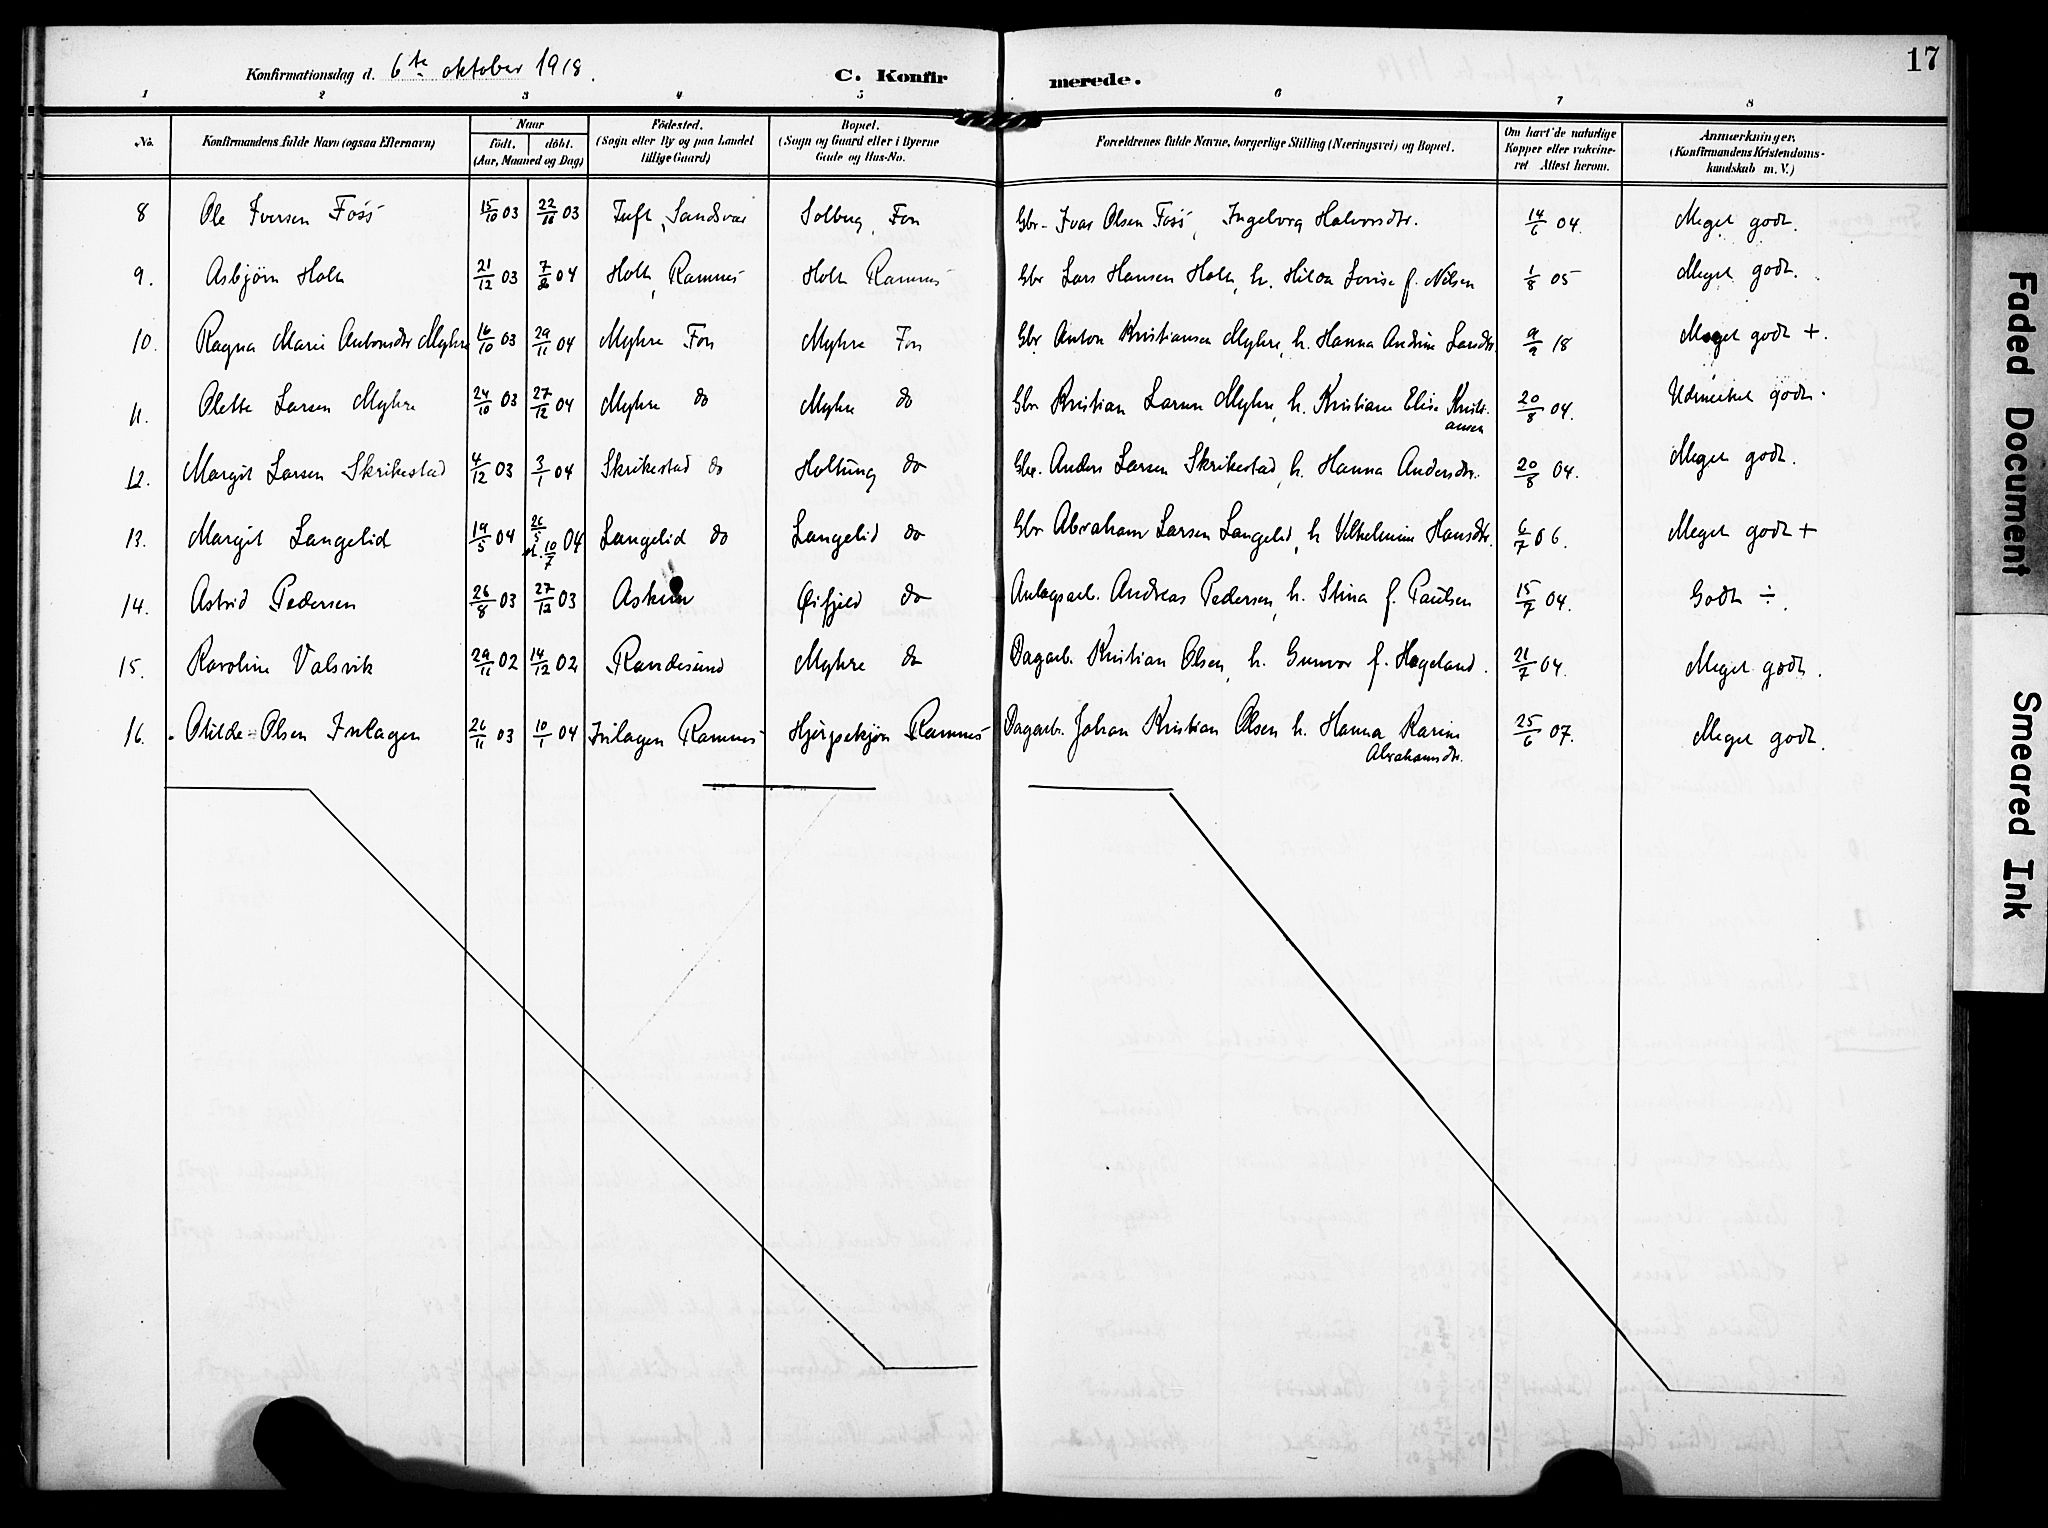 17
Konfirmationsdag d. 6te oktober 1918.
C. Konfirmerede.
1 2 3 4 5 6 7 8
No.
Konfirmandens fulde Navn (ogsaa Efternavn)
Naar
født. døbt.
(Aar, Maaned og Dag)
Fødested.
(Sogn eller By og paa Landet
tillige Gaard)
Bopæl.
(Sogn og Gaard eller i Byerne
Gade og Hus-No.
Forældrenes fulde Navne, borgerlige Stilling (Næringsvei) og Bopæl.
Om havt de naturlige
Kopper eller vakcine-
ret Attest herom.
Anmærkninger.
(Konfirmandens Kristendoms-
kundskab m. V.)
8 Ole Iversen Foss 15/10 03 22/11 03 Tuft, Sandsvær Solberg, Fon Gbr. Ivar Olsen Foss, Ingeborg Halvorsdtr. 14/6 04. Meget godt.
9. Asbjørn Holt 21/12 03 7/2 04 Holt, Ramnes Holt Ramnes Gbr Lars Hansen Holt, h. Hilda Lovise f. Nilsen 1/8 05 Meget godt.
10. Ragna Marie Antonsdtr Myhre 16/10 03 29/11 04 Myhre Fon Myhre Fon Gbr Anton Kristiansen Myhre, h. Hanna Andrine Larsdtr. 9/9 18 Meget godt +.
11. Olette Larsen Myhre 24/10 03 27/12 04 Myhre do Myhre do Gbr Kristian Larsen Myhre, h. Kristiane Elise Kristi-
ansen 20/8 04. Udmerket godt.
12. Margit Larsen Skrikestad 4/12 03 3/1 04 Skrikestad do Holtung do Gbr. Anders Larsen Skrikestad, h. Hanna Andersdtr. 20/8 04. Meget godt.
13. Margit Langelid 19/5 04 26/5 st. 10/7 04 Langelid do Langelid do Gbr Abraham Larsen Langelid, h Vilhelmine Hansdtr. 6/7 06. Meget godt +
14. Astrid Pedersen 26/8 03 27/12 03 Askim Øifjeld do Anlægsarb. Andreas Pedersen, h. Stina f. Paulsen 15/7 04. Godt ÷.
15. Karoline Valsvik 29/11 02 14/12 02 Randesund Myhre do Dagarb. Kristian Olsen, h. Gunvor f. Hageland. 21/7 04. Meget godt.
16. Otilde Olsen Inlagen 26/11 03 10/1 04 Inlagen Ramnes Hjerpekjøn Ramnes Dagarb. Johan Kristian Olsen h. Hanna Karine
Abrahamsdtr. 25/6 07. Meget godt.
Faded Document
Smeared Ink